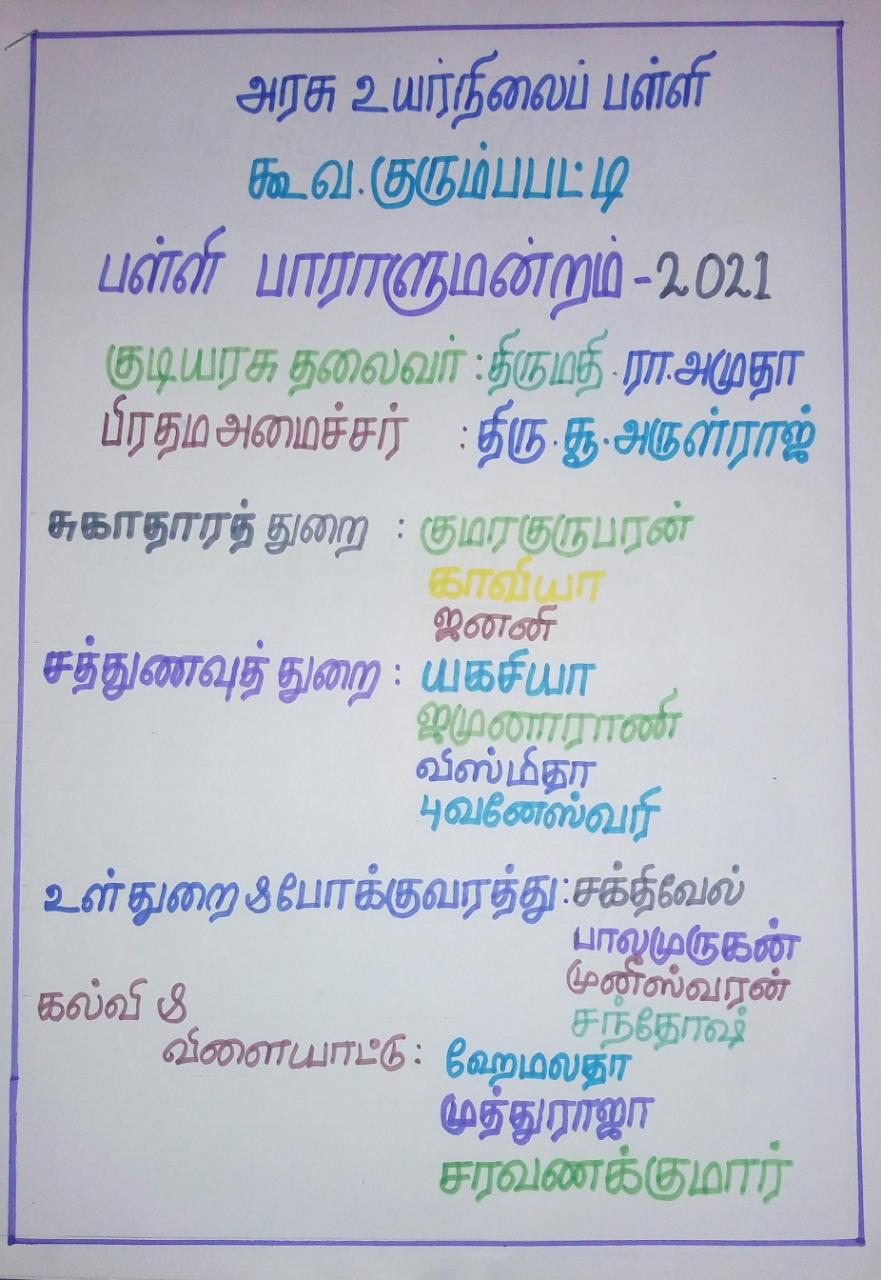 அரசு உயர்நிலைப் பள்ளி
கூவ. குரும்பபட்டி
பள்ளி பாராளுமன்றம் - 2021
குடியரசு தலைவர் : திருமதி. ரா. அமுதா
பிரதம அமைச்சர் : திரு. சூ. அருள்ராஜ்
சுகாதாரத் துறை : குமரகுருபரன்
காவியா
ஜனனி
சத்துணவுத் துறை : யகசியா
ஜமுனாராணி
விஸ்மிதா
புவனேஸ்வரி
உள் துறை & போக்குவரத்து : சக்திவேல்
பாலமுருகன்
முனீஸ்வரன்
சந்தோஷ்
கல்வி &
விளையாட்டு : ஹேமலதா
முத்துராஜா
சரவணக்குமார்